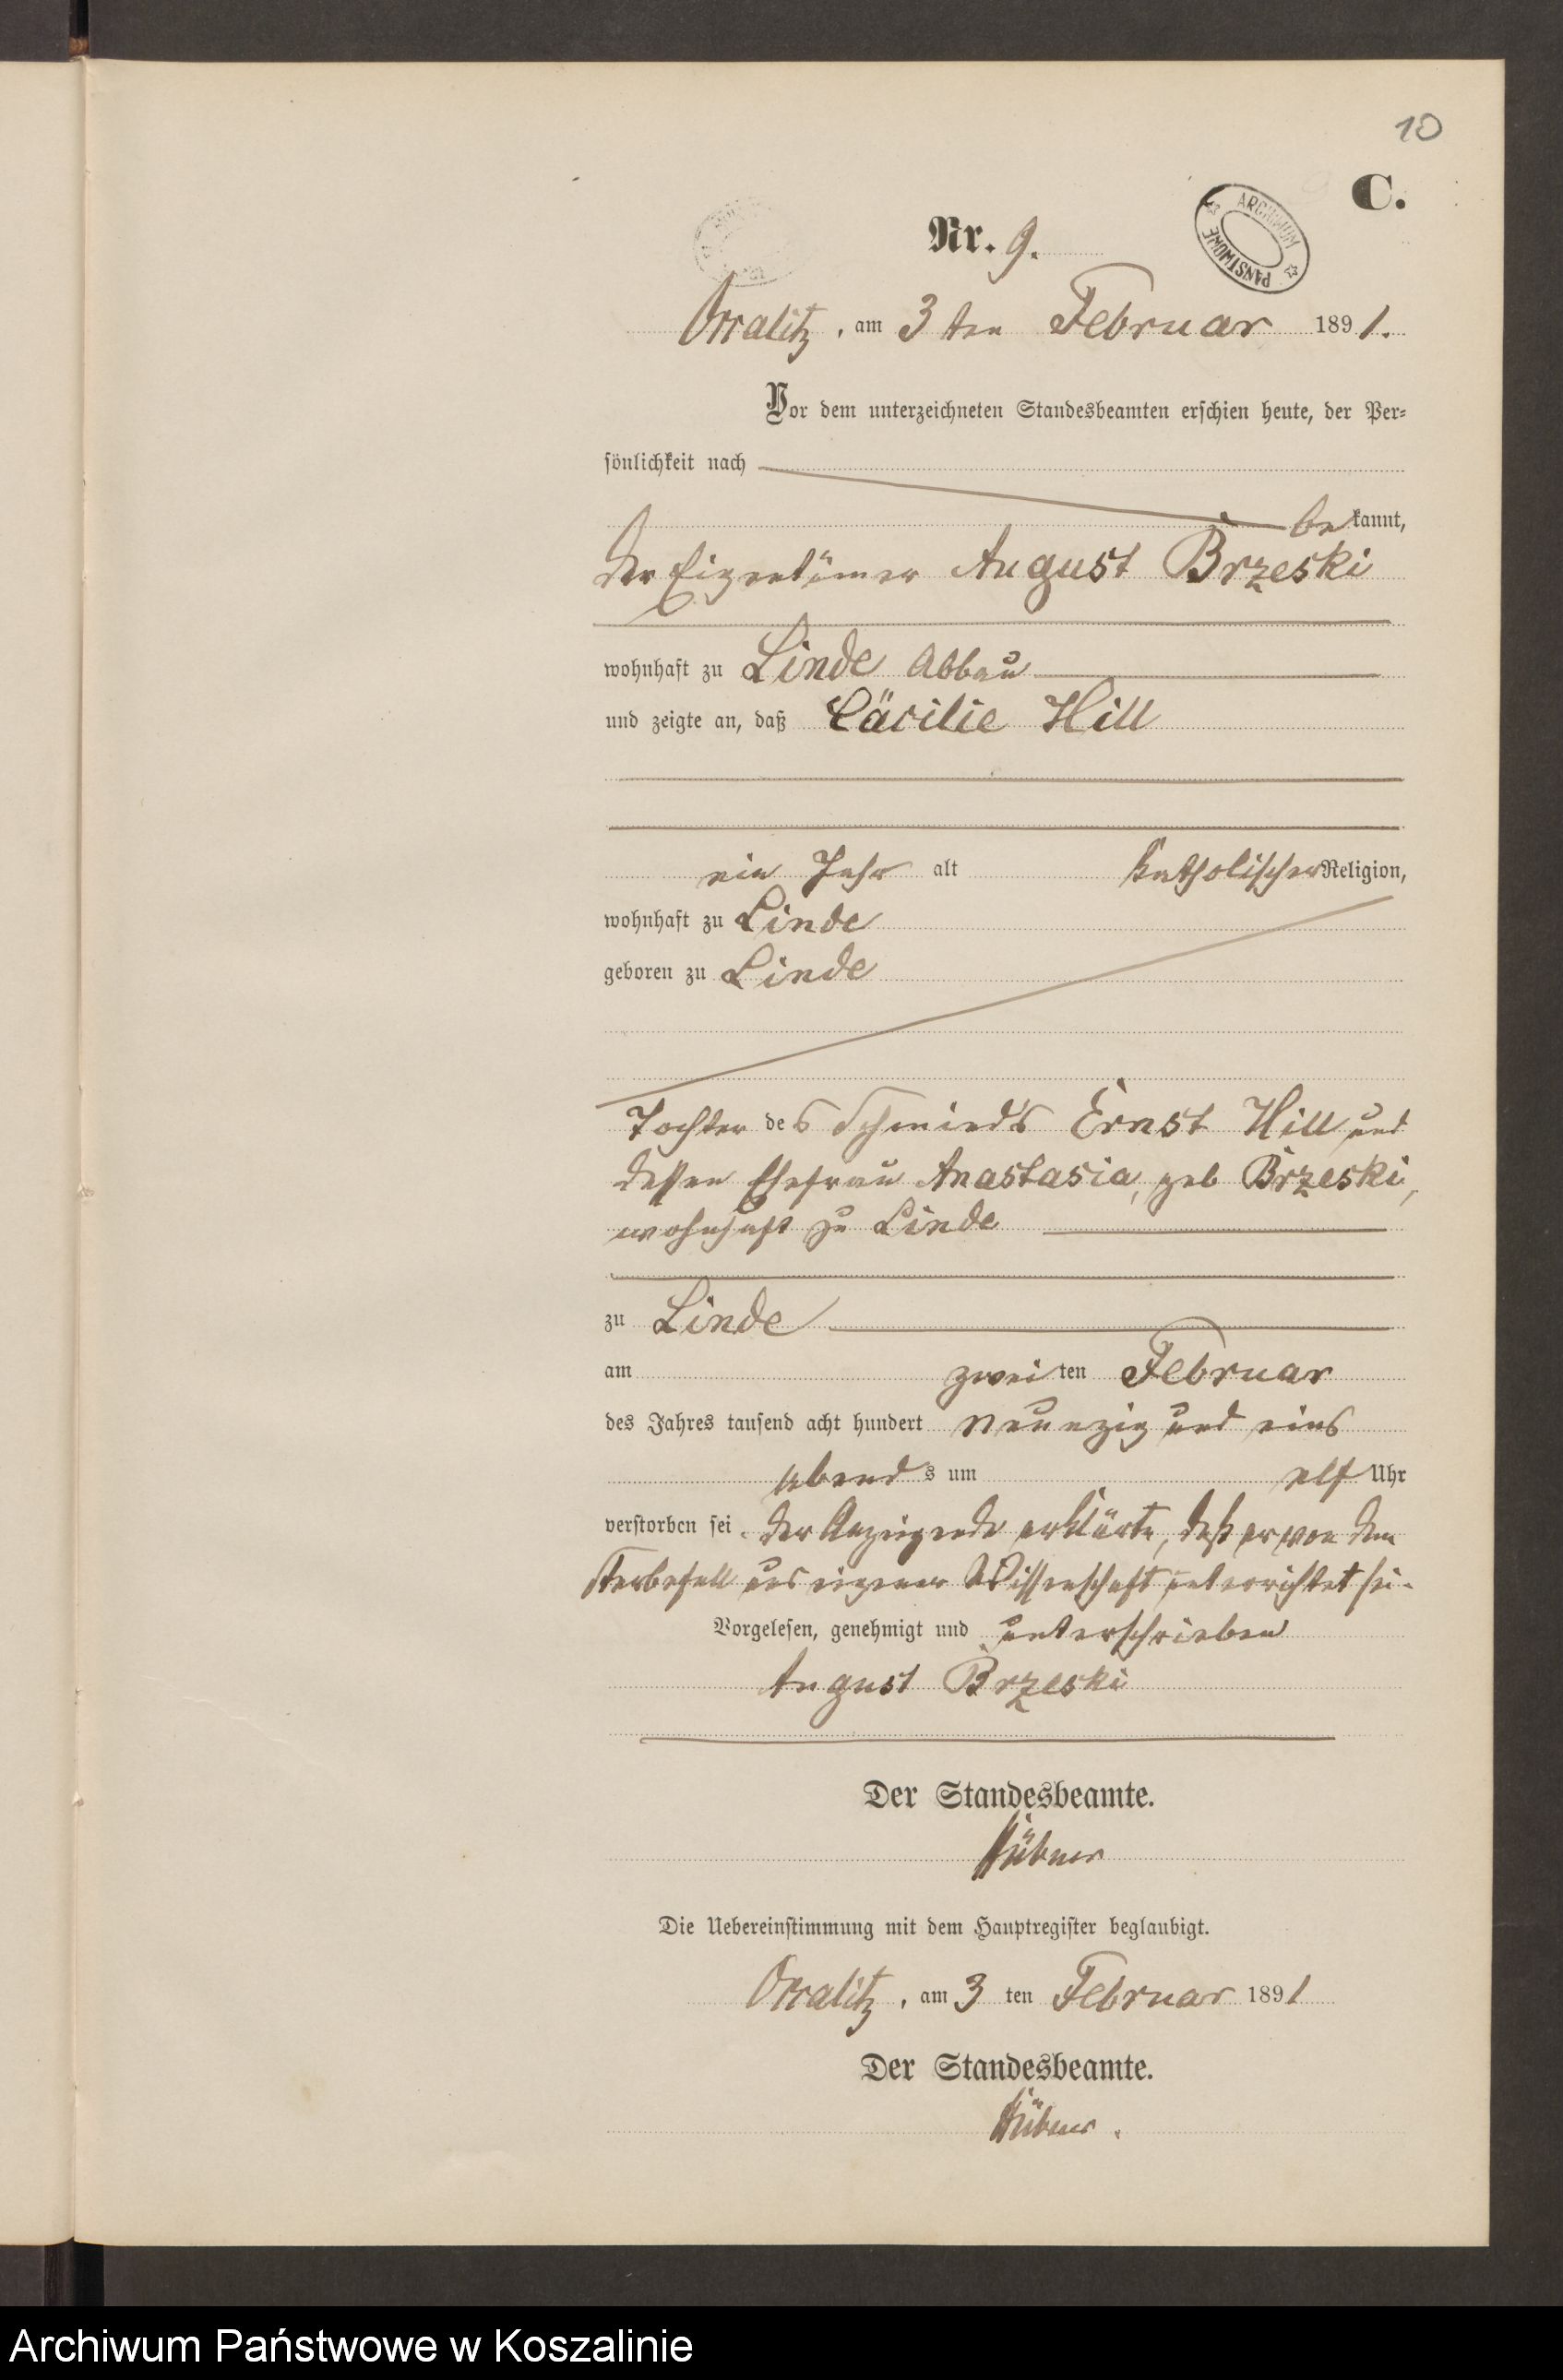 10
C.
ARCHIWUM PAŃSTWOWE
Nr. 9.
Orralitz, am 3 ten Februar 1891.
Vor dem unterzeichneten Standesbeamten erschien heute, der Per-
sönlichkeit nach
bekannt,
der Eigentümer August Brzeski
wohnhaft zu Linde Abbau
und zeigte an, daß Cäcilie Hill
ein Jahr alt katholischer Religion,
wohnhaft zu Linde
geboren zu Linde
Tochter des Schmied's Ernst Hill und
dessen Ehefrau Anastasia, geb Brzeski,
wohnhaft zu Linde
zu Linde
am zweiten Februar
des Jahres tausend acht hundert neunzig und eins
Abends um elf Uhr
verstorben sei. Der Anzeigende erklärte, daß er von dem
Sterbefall aus eigener Wissenschaft unterrichtet sei.
Vorgelesen, genehmigt und unterschrieben
August Brzeski
Der Standesbeamte.
Hübner
Die Uebereinstimmung mit dem Hauptregister beglaubigt.
Orralitz, am 3 ten Februar 1891
Der Standesbeamte.
Hübner.
Archiwum Państwowe w Koszalinie